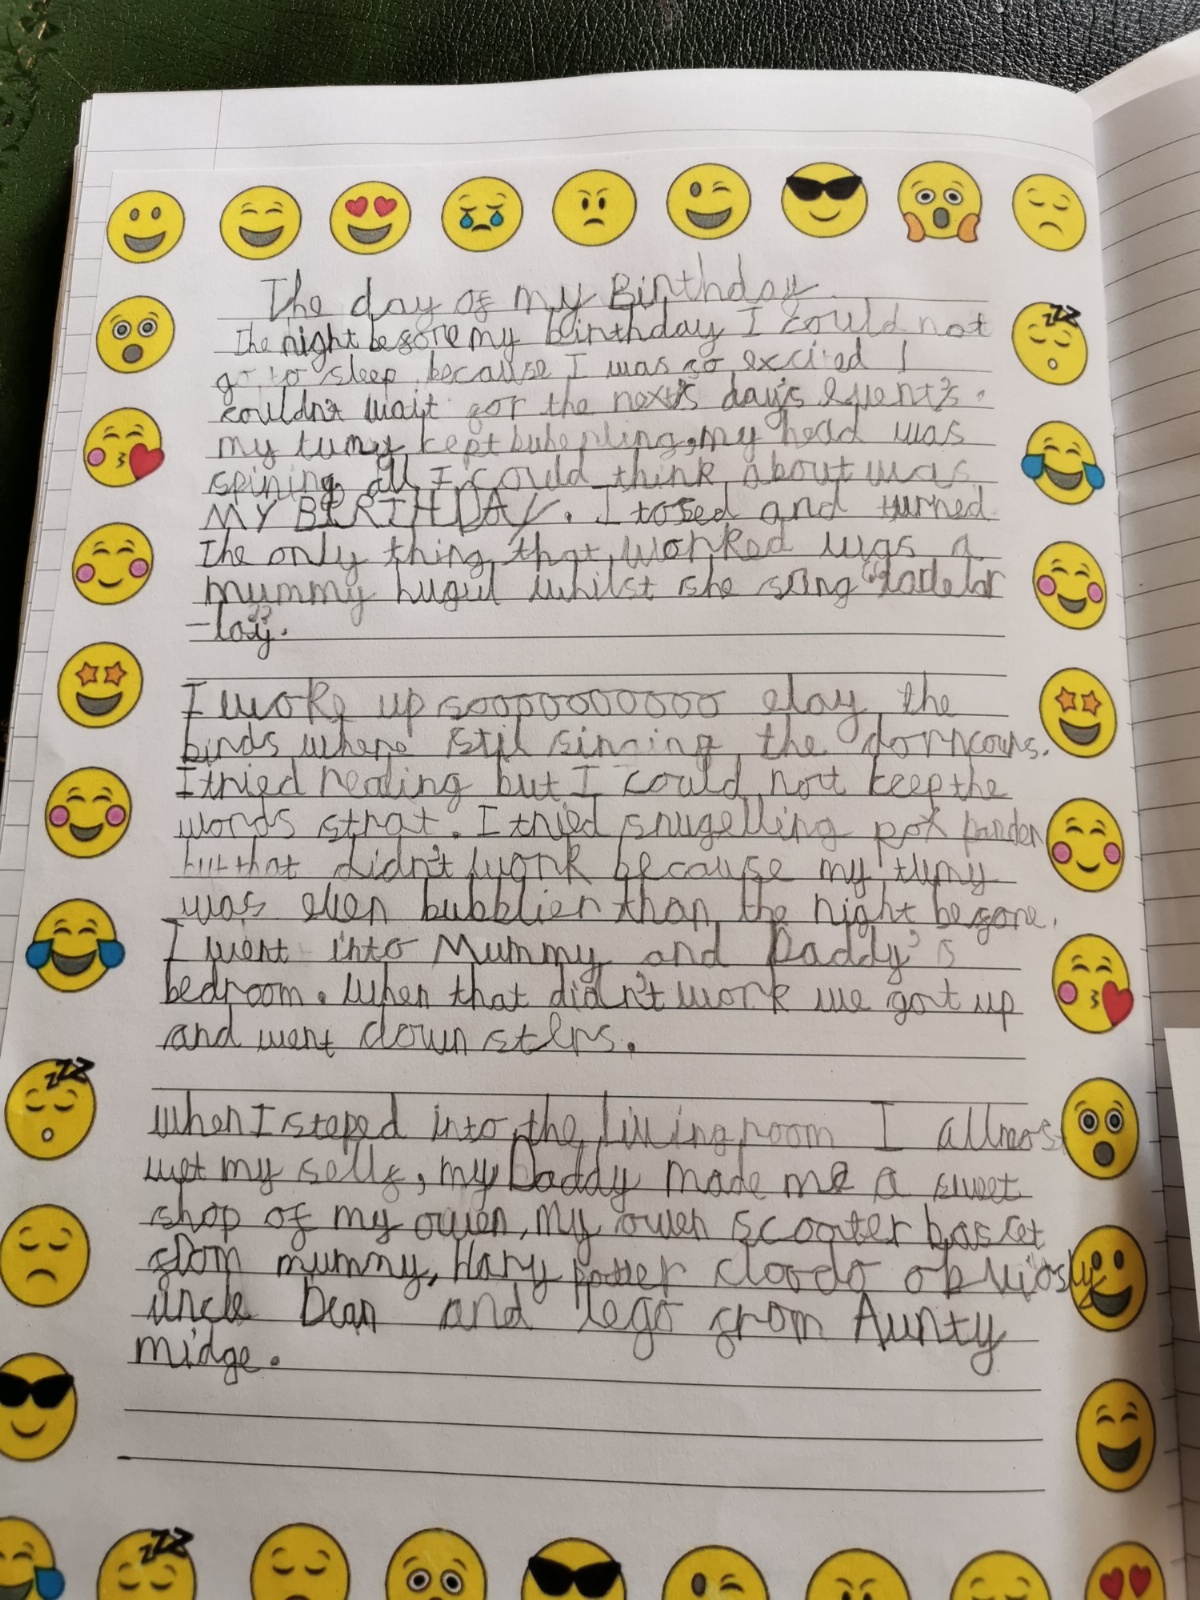 The day of my Birthday
The night before my birthday I could not
go to sleep because I was so excited I
couldn't wait for the next's day's event's.
my tumy kept bubepling, my head was
spining all I could think about was
MY BIRTHDAY. I tosed and turned
The only thing that worked was a
mummy hugul whilst she sang "ladelar
-lay".
I woke up sooooooooooo elay the
birds where still sinning the dorncours.
I tried reading but I could not keep the
words strat. I tried snugelling
but that didn't work because my tumy
was even bubblier than the night before.
I went into Mummy and Daddy's
bedroom. When that didn't work we got up
and went down sters.
when I steped into the living room I allmost
wet my selfs, my Daddy made me a sweet
shop of my owen, my owen scooter basket
from mummy, Hary potter cloodo obviosly
uncle Dean and lego from Aunty
midge.
zzz
zzz
zzz